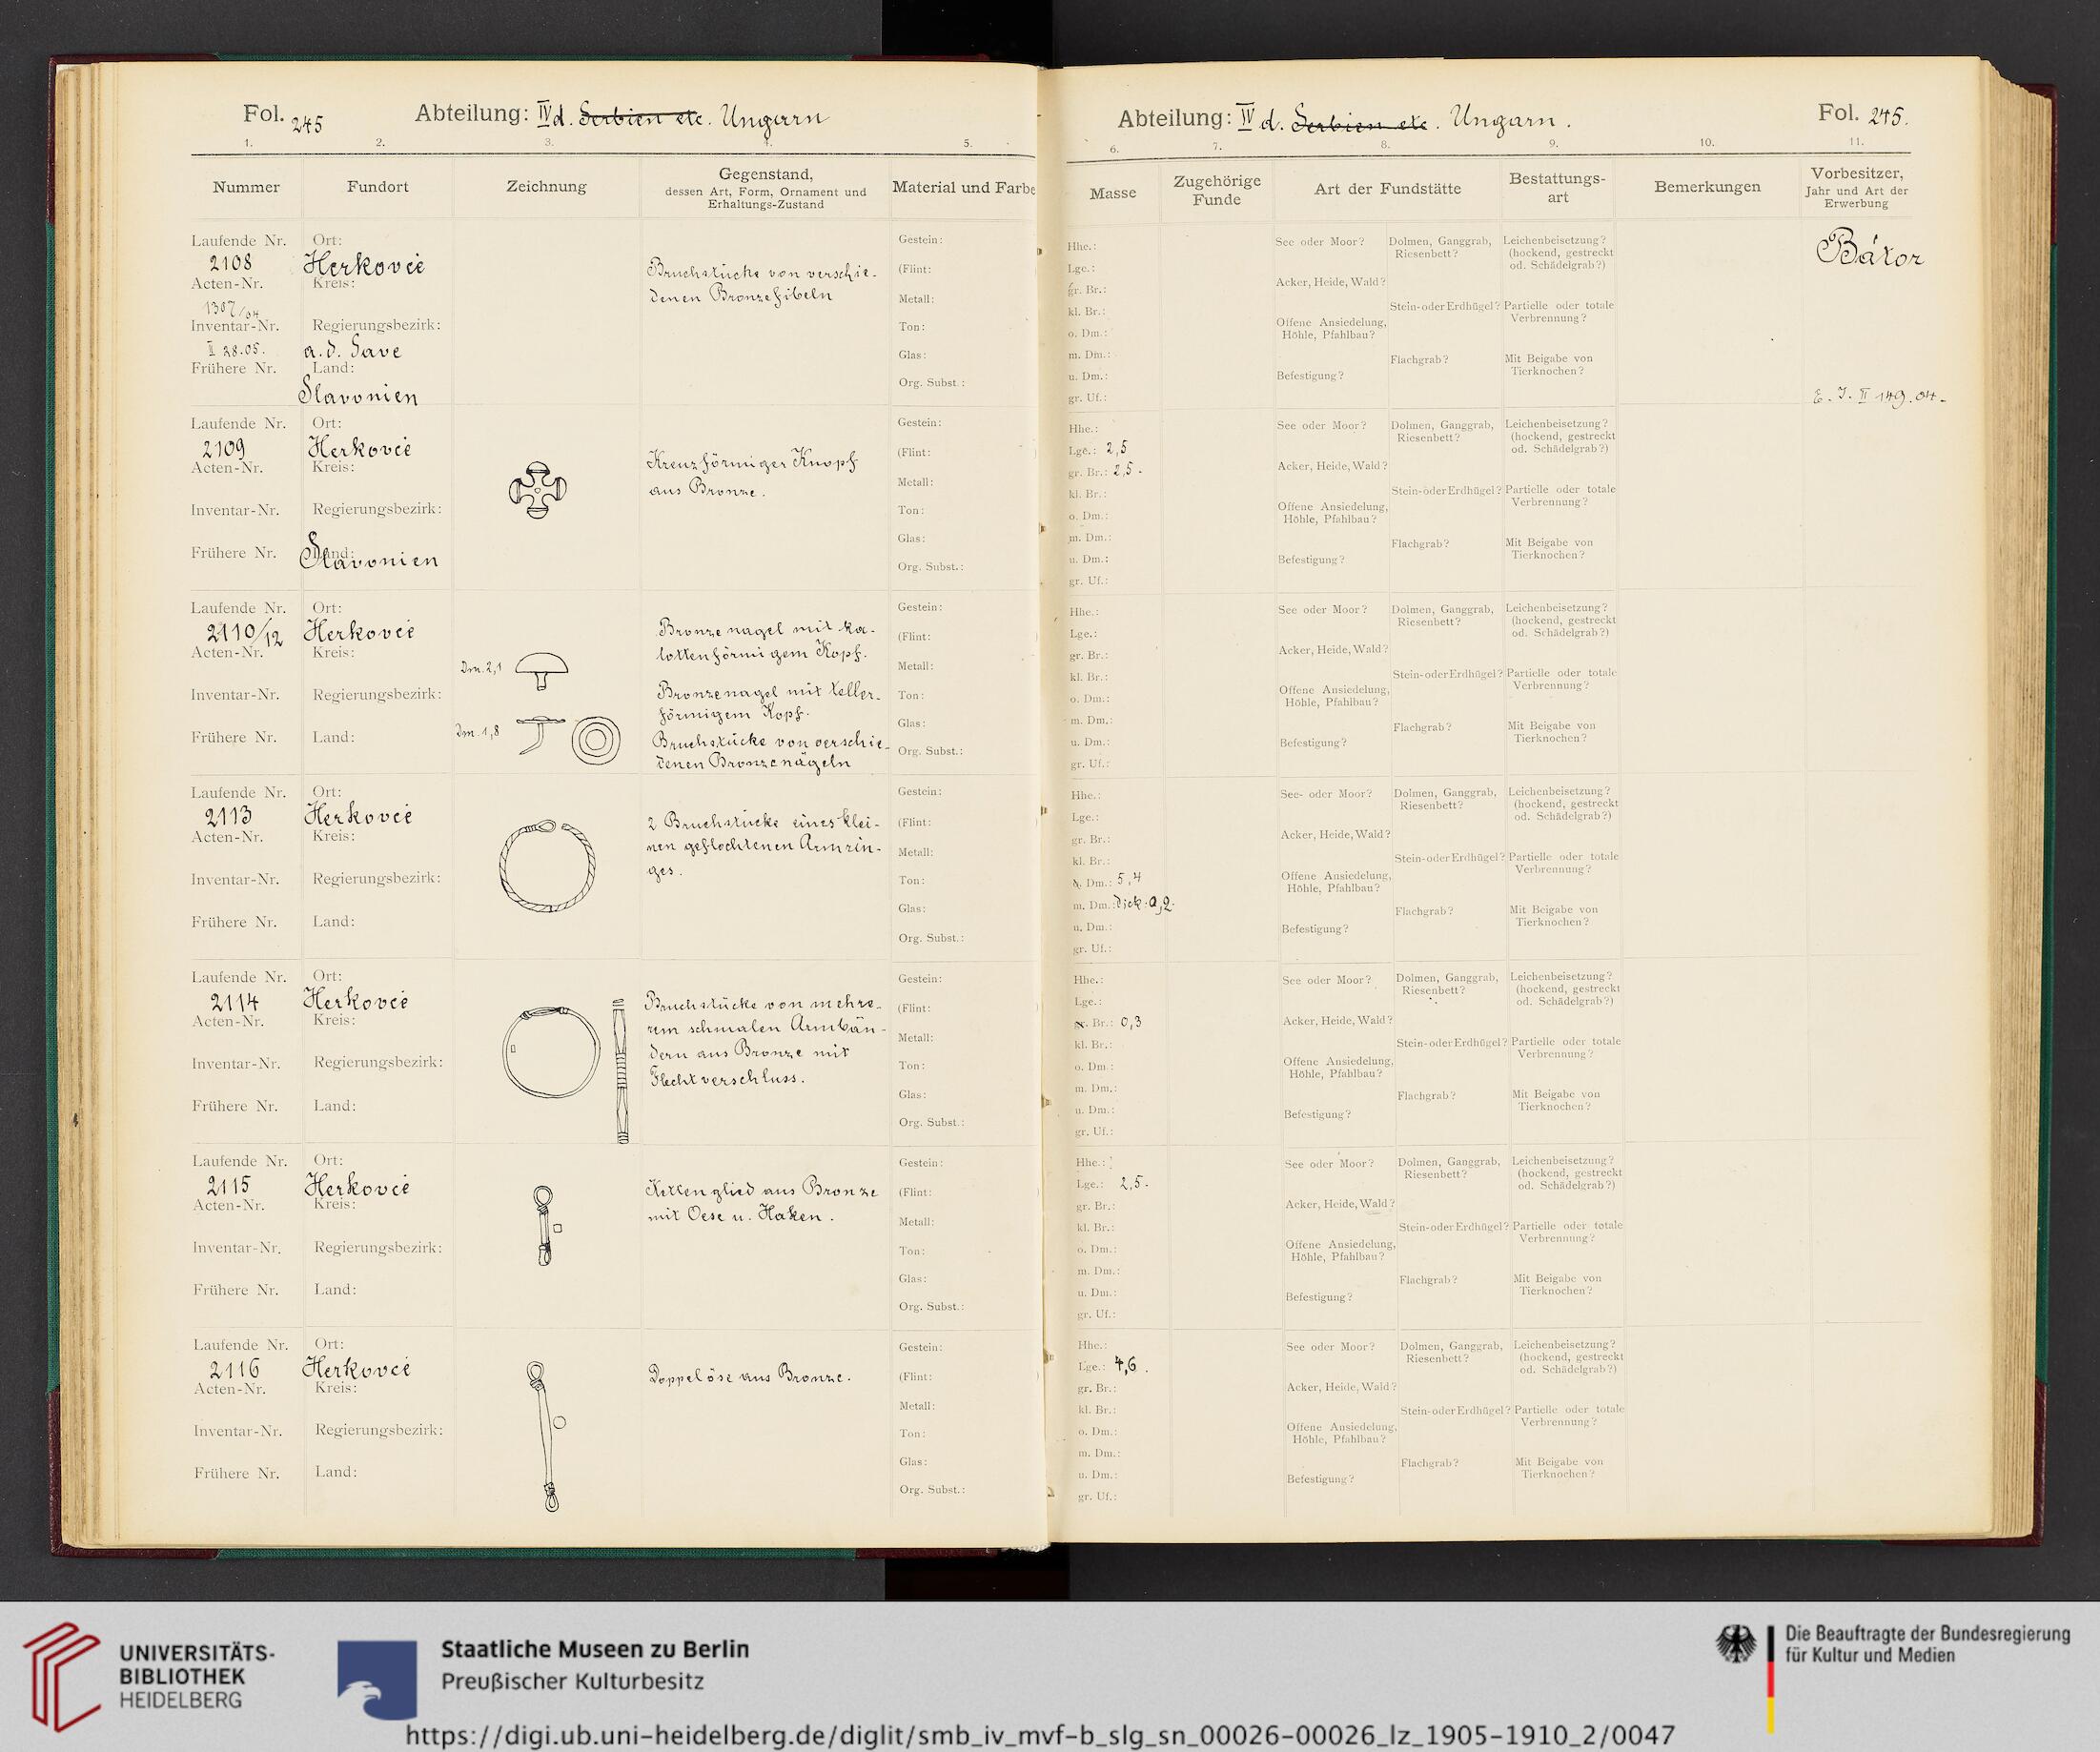 Fol. 245 Abteilung: IV d. Serbien etc. Ungarn
1. 2. 3. 4. 5.
Nummer Fundort Zeichnung Gegenstand, dessen Art, Form, Ornament und Erhaltungs-Zustand Material und Farbe
Laufende Nr. Ort: Gestein:
2108 Herkovcé Bruchstücke von verschie-
denen Bronzefibeln (Flint:
Acten-Nr. Kreis:
1307/04 Metall:
Inventar-Nr. Regierungsbezirk: Ton:
II 28.05. a. d. Save Glas:
Frühere Nr. Land:
Slavonien Org. Subst.:
Laufende Nr. Ort: Gestein:
2109 Herkovcé Kreuzförmiger Knopf (Flint:
Acten-Nr. Kreis:
aus Bronze. Metall:
Inventar-Nr. Regierungsbezirk: Ton:
Glas:
Frühere Nr. Land:
Slavonien Org. Subst.:
Laufende Nr. Ort: Gestein:
2110/12 Herkovcé Bronzenagel mit ka- (Flint:
Acten-Nr. Kreis: lottenförmigem Kopf.
Dm. 2,1 Metall:
Inventar-Nr. Regierungsbezirk: Bronzenagel mit teller- Ton:
förmigem Kopf. Glas:
Frühere Nr. Land: Dm. 1,8 Bruchstücke von verschie-
denen Bronzenägeln Org. Subst.:
Laufende Nr. Ort: Gestein:
2113 Herkovcé 2 Bruchstücke eines klei- (Flint:
Acten-Nr. Kreis: nen geflochtenen Armrin- Metall:
ges.
Inventar-Nr. Regierungsbezirk: Ton:
Glas:
Frühere Nr. Land:
Org. Subst.:
Laufende Nr. Ort: Gestein:
2114 Herkovcé Bruchstücke von mehre- (Flint:
Acten-Nr. Kreis: ren schmalen Armbän- Metall:
dern aus Bronze mit
Inventar-Nr. Regierungsbezirk: Flechtverschluss. Ton:
Glas:
Frühere Nr. Land:
Org. Subst.:
Laufende Nr. Ort: Gestein:
2115 Herkovcé Kettenglied aus Bronze (Flint:
Acten-Nr. Kreis: mit Oese u. Haken. Metall:
Inventar-Nr. Regierungsbezirk: Ton:
Glas:
Frühere Nr. Land:
Org. Subst.:
Laufende Nr. Ort: Gestein:
2116 Herkovcé Doppelöse aus Bronze. (Flint:
Acten-Nr. Kreis: Metall:
Inventar-Nr. Regierungsbezirk: Ton:
Glas:
Frühere Nr. Land:
Org. Subst.:
Abteilung: IV d. Serbien etc. Ungarn. Fol. 245.
6. 7. 8. 9. 10. 11.
Masse Zugehörige Funde Art der Fundstätte Bestattungs-art Bemerkungen Vorbesitzer, Jahr und Art der Erwerbung
Hhe.: See oder Moor? Dolmen, Ganggrab, Leichenbeisetzung? Bátor
Lge.: Riesenbett? (hockend, gestreckt
od. Schädelgrab?)
gr. Br.: Acker, Heide, Wald?
kl. Br.: Stein- oder Erdhügel? Partielle oder totale
o. Dm.: Offene Ansiedelung, Verbrennung?
Höhle, Pfahlbau?
m. Dm.: Flachgrab? Mit Beigabe von
u. Dm.: Befestigung? Tierknochen?
gr. Uf.: E. J. II 149.04.
Hhe.: See oder Moor? Dolmen, Ganggrab, Leichenbeisetzung?
Lge.: 2,5 Riesenbett? (hockend, gestreckt
od. Schädelgrab?)
gr. Br.: 2,5. Acker, Heide, Wald?
kl. Br.: Stein- oder Erdhügel? Partielle oder totale
o. Dm.: Offene Ansiedelung, Verbrennung?
Höhle, Pfahlbau?
m. Dm.: Flachgrab? Mit Beigabe von
u. Dm.: Befestigung? Tierknochen?
gr. Uf.:
Hhe.: See oder Moor? Dolmen, Ganggrab, Leichenbeisetzung?
Lge.: Riesenbett? (hockend, gestreckt
od. Schädelgrab?)
gr. Br.: Acker, Heide, Wald?
kl. Br.: Stein- oder Erdhügel? Partielle oder totale
o. Dm.: Offene Ansiedelung, Verbrennung?
Höhle, Pfahlbau?
m. Dm.: Flachgrab? Mit Beigabe von
u. Dm.: Befestigung? Tierknochen?
gr. Uf.:
Hhe.: See- oder Moor? Dolmen, Ganggrab, Leichenbeisetzung?
Lge.: Riesenbett? (hockend, gestreckt
od. Schädelgrab?)
gr. Br.: Acker, Heide, Wald?
kl. Br.: Stein- oder Erdhügel? Partielle oder totale
Dm.: 5,4 Offene Ansiedelung, Verbrennung?
Höhle, Pfahlbau?
m. Dm.: Dick: 0,2. Flachgrab? Mit Beigabe von
u. Dm.: Befestigung? Tierknochen?
gr. Uf.:
Hhe.: See oder Moor? Dolmen, Ganggrab, Leichenbeisetzung?
Lge.: Riesenbett? (hockend, gestreckt
od. Schädelgrab?)
Br.: 0,3 Acker, Heide, Wald?
kl. Br.: Stein- oder Erdhügel? Partielle oder totale
o. Dm.: Offene Ansiedelung, Verbrennung?
Höhle, Pfahlbau?
m. Dm.: Flachgrab? Mit Beigabe von
u. Dm.: Befestigung? Tierknochen?
gr. Uf.:
Hhe.: See oder Moor? Dolmen, Ganggrab, Leichenbeisetzung?
Lge.: 2,5. Riesenbett? (hockend, gestreckt
od. Schädelgrab?)
gr. Br.: Acker, Heide, Wald?
kl. Br.: Stein- oder Erdhügel? Partielle oder totale
o. Dm.: Offene Ansiedelung, Verbrennung?
Höhle, Pfahlbau?
m. Dm.: Flachgrab? Mit Beigabe von
u. Dm.: Befestigung? Tierknochen?
gr. Uf.:
Hhe.: See oder Moor? Dolmen, Ganggrab, Leichenbeisetzung?
Lge.: 4,6. Riesenbett? (hockend, gestreckt
od. Schädelgrab?)
gr. Br.: Acker, Heide, Wald?
kl. Br.: Stein- oder Erdhügel? Partielle oder totale
o. Dm.: Offene Ansiedelung, Verbrennung?
Höhle, Pfahlbau?
m. Dm.: Flachgrab? Mit Beigabe von
u. Dm.: Befestigung? Tierknochen?
gr. Uf.:
UNIVERSITÄTS-
BIBLIOTHEK
HEIDELBERG
Staatliche Museen zu Berlin
Preußischer Kulturbesitz
Die Beauftragte der Bundesregierung
für Kultur und Medien
https://digi.ub.uni-heidelberg.de/diglit/smb_iv_mvf-b_slg_sn_00026-00026_lz_1905-1910_2/0047